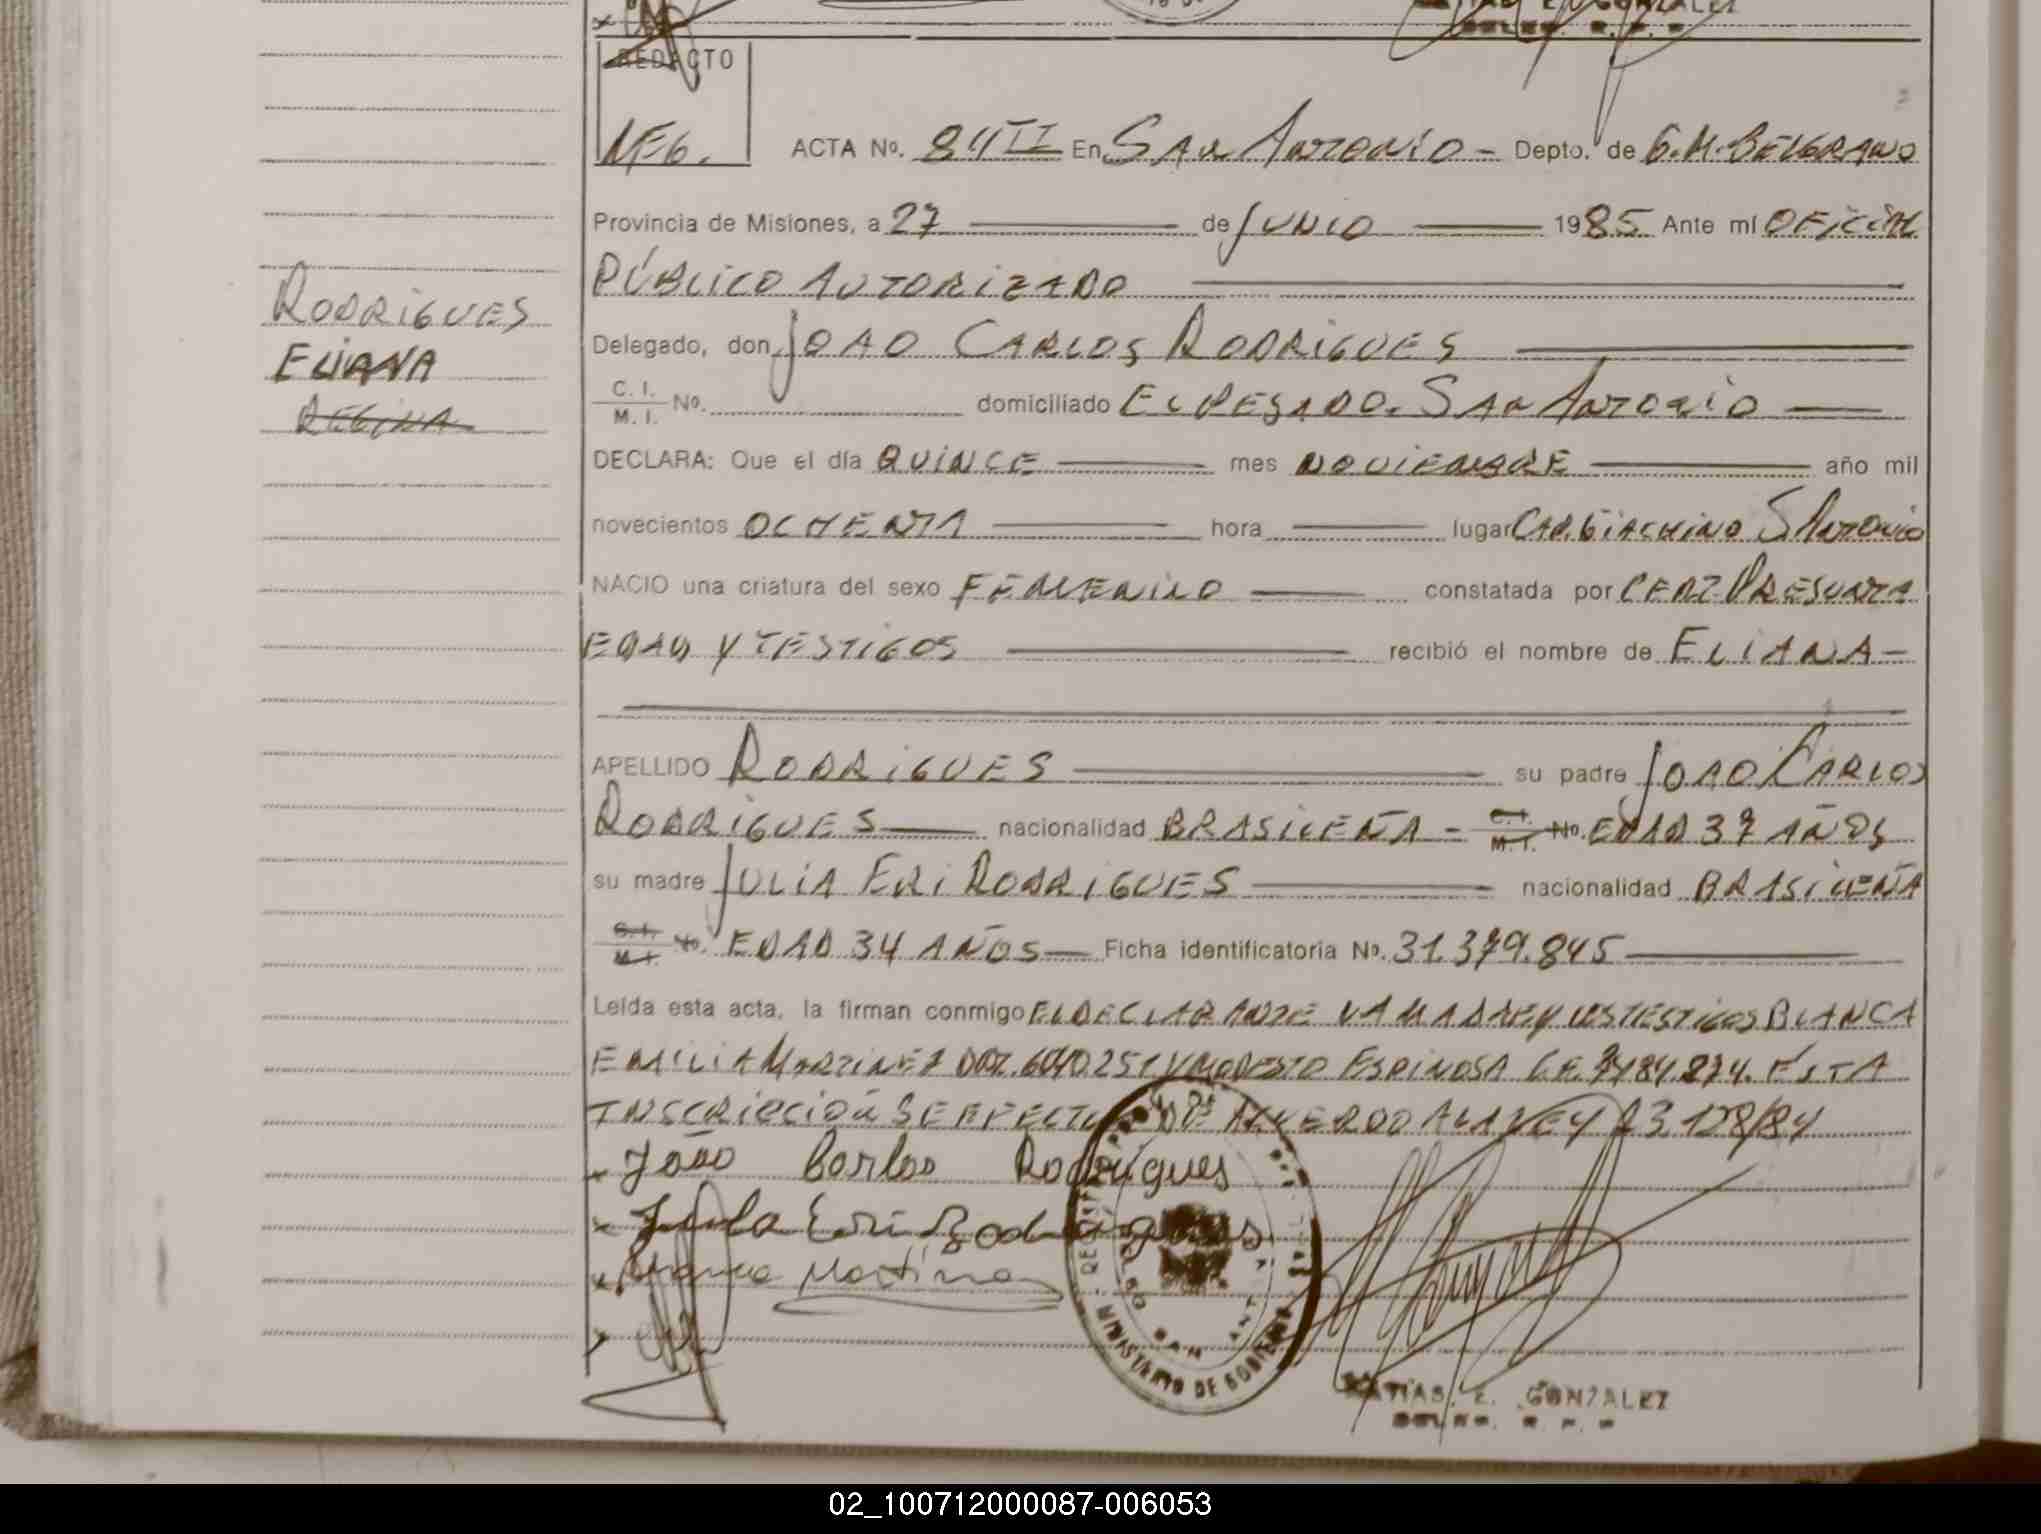 REDACTO
MEG.
ACTA Nº. 84 II En SAN ANTONIO - Depto. de G.M. BELGRANO
Provincia de Misiones, a 27 de JUNIO 1985 Ante mí OFICIAL
PÚBLICO AUTORIZADO
Delegado, don JOAO CARLOS RODRIGUES
C. I.
M. I. Nº. domiciliado EL PESADO. SAN ANTONIO
DECLARA: Que el día QUINCE mes NOVIEMBRE año mil
novecientos OCHENTA hora lugar CAP. GIACHINO S ANTONIO
NACIO una criatura del sexo FEMENINO constatada por CERT PRESUNTA
EDAD Y TESTIGOS recibió el nombre de ELIANA -
APELLIDO RODRIGUES su padre JOAO CARLOS
RODRIGUES nacionalidad BRASILEÑA - C.I. M.I. Nº. EDAD 37 AÑOS
su madre JULIA ERI RODRIGUES nacionalidad BRASILEÑA
C.I. M.I. Nº. EDAD 34 AÑOS Ficha identificatoria Nº. 31.379.845
Leída esta acta, la firman conmigo EL DECLARANTE LA MADRE Y LOS TESTIGOS BLANCA
EMILIA MARTINEZ Y MODESTO ESPINOSA ESTA
INSCRIPCIÓN SE EFECTUA DE ACUERDO A LA LEY 23.128/84
João Carlos Rodrigues
Julia Eri Rodrigues
Blanca Martinez
MINISTERIO DE GOBIERNO
MATIAS E. GONZALEZ
RODRIGUES
ELIANA
REGINA
02_100712000087-006053